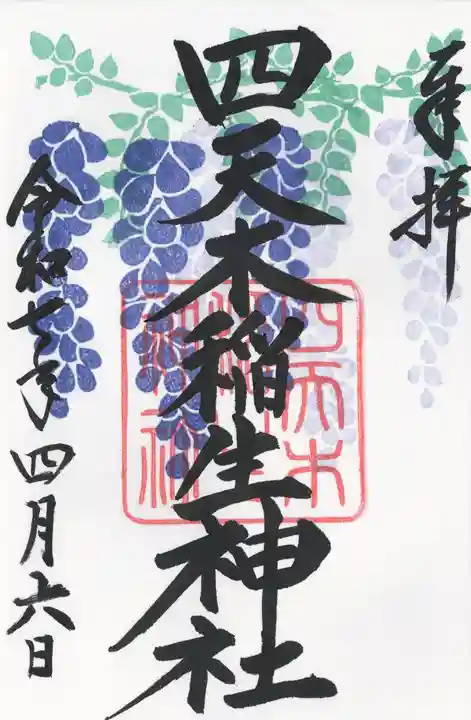 奉拝
四天木稲生神社
四天木稲生神社
令和七年四月六日